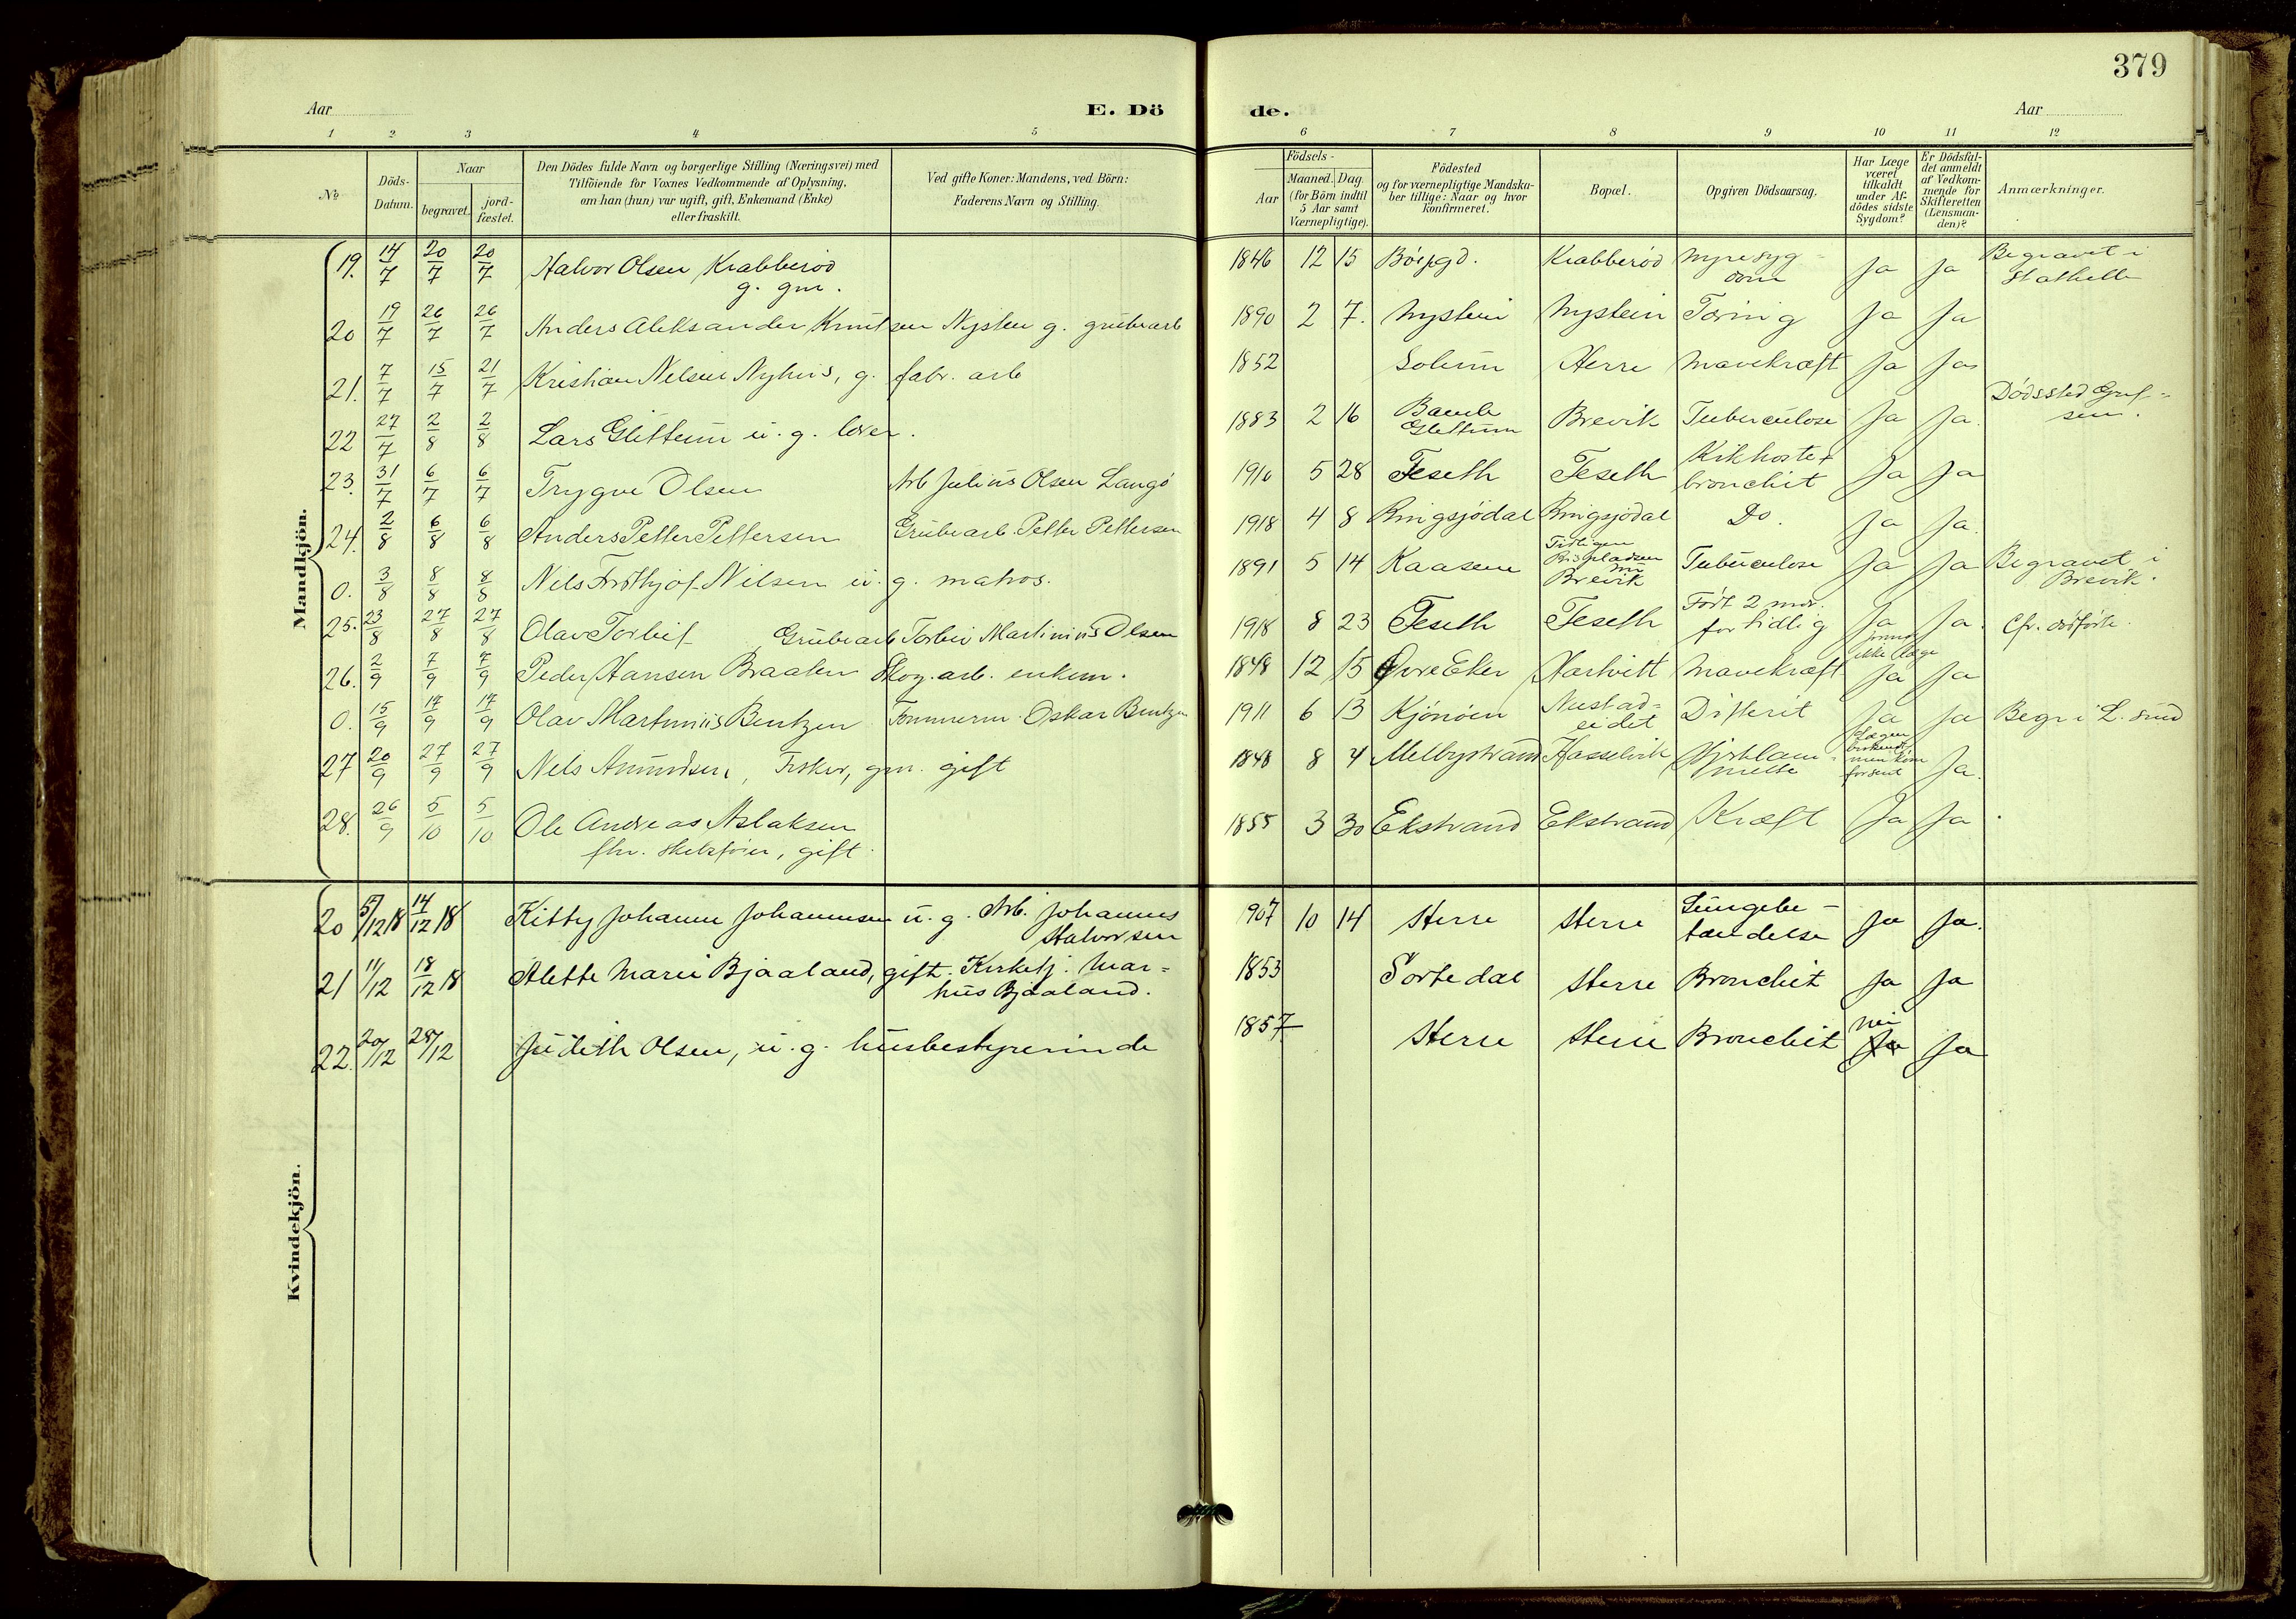 379
Aar
E. Dö
de.
Aar
1 2 3 4 5 6 7 8 9 10 11 12
№
Döds-Datum.
Naar
begravet.
jord-fæstet.
Den Dödes fulde Navn og borgerlige Stilling (Næringsvei) med
Tilföiende for Voxnes Vedkommende af Oplysning,
om han (hun) var ugift, gift, Enkemand (Enke)
eller fraskilt.
Ved gifte Koner: Mandens, ved Börn:
Faderens Navn og Stilling.
Födsels-
Aar
Maaned. Dag.
(for Börn indtil
5 Aar samt
Værnepligtige).
Födested
og for værnepligtige Mandska-
ber tillige: Naar og hvor
konfirmeret.
Bopæl.
Opgiven Dödsaarsag.
Har Læge
været
tilkaldt
under Af-
dödes sidste
Sygdom?
Er Dödsfal-
det anmeldt
af Vedkom-
mende for
Skifteretten
(Lensman-
den)?
Anmærkninger.
Mandkjön.
19. 14/7 20/7 20/7 Halvor Olsen Krabberød g. gm. 1846 12 15 Krabberød Nyresyg-dom Ja Ja Begravet i Stathelle
20 19/7 26/7 26/7 Anders Aleksander Knutsen Nysten g. grubearb 1890 2 7. Nystein Nystein Tæring Ja Ja
21. 7/7 15/7 21/7 Kristian Nelsen Nyhus, g. fabr. arb 1852 Solum Herre Mavekræft Ja Ja
22 27/7 2/8 2/8 Lars Glittum u. g. lærer. 1883 2 16 Bamle Glittum Brevik Tuberculose Ja Ja. Dødssted Gref-sen.
23. 31/7 6/7 6/7 Trygve Olsen Arb Julius Olsen Langö 1910 5 28 Feseth Feseth Kikhoste + bronchit Ja Ja
24. 2/8 6/8 6/8 Anders Petter Pettersen Grubearb. Petter Pettersen 1918 4 8 Ringsjödal Ringsjödal Do. Ja Ja.
0. 3/8 8/8 8/8 Nels Fridthjof Nilsen u. g. matros. 1891 5 14 Kaasene Tidligere nu Brevik Tuberculose Ja Ja Begravet i Brevik.
25. 23/8 27/8 27/8 Olav Torleif Grubearb Torleiv Martinius Olsen 1918 8 23 Feseth Feseth Født 2 mdr. for tidlig Ja ikke læge Ja. Cfr. dødfødte.
26. 2/9 7/9 7/9 Peder Hansen Braaten Skog. arb. enkem. 1848 12 15 Øvre Eker Hartvitt Mavekræft Ja Ja
0. 15/9 17/9 17/9 Olav Martinius Bentzen Tømmerm. Oskar Bentzen 1911 6 13 Kjönöen Nustad-eidet Difterit Ja Ja Begr i L. sund
27 20/9 27/9 27/9 Nels Amundsen, Fisker, gm. gift 1848 8 4 Melbystrand Hasselvik Hjertelam-melse Lægen men kom for sent Ja.
28. 26/9 5/10 5/10 Ole Andreas Aslaksen fhv. skibsfører, gift. 1855 3 30 Ekstrand Ekstrand Kræft Ja Ja
Kvindekjön.
20 5/12 18 14/12 18 Kitty Johanne Johannesen u. g. Arb. Johannes Halvorsen 907 10 14 Herre Herre Lungebe-tændelse Ja Ja.
21 11/12 18/12 18 Alette Marie Bjaaland, gift. Kirketj. Mar-kus Bjaaland. 1853 Sortedal Herre Bronchit Ja Ja
22. 20/12 28/12 Judith Olsen, u. g. husbestyrerinde 1857 Herre Herre Bronchit Nei Ja Ja